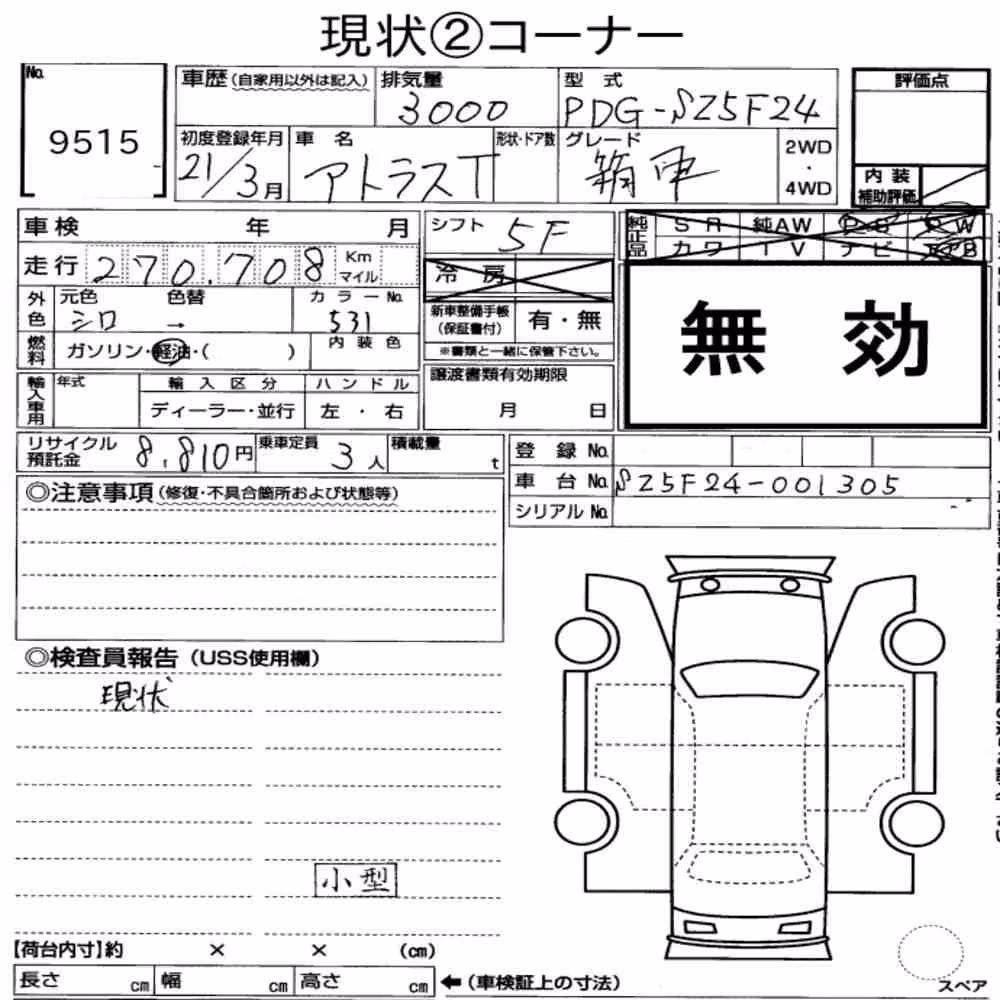 現状②コーナー
No. 9515
車歴(自家用以外は記入) 排気量 3000 型式 PDG-SZ5F24 評価点
初度登録年月 21/3月 車名 アトラスT 形状・ドア数 グレード 箱車 2WD・4WD
内装補助評価
車検 年 月 シフト 5F
純正品 SR 純AW PS PW
カワ TV ナビ エアB
走行 270,708 Km マイル 冷房
外色 元色 シロ 色替 → カラーNo. 531
新車整備手帳(保証書付) 有・無
※書類と一緒に保管下さい。
無効
燃料 ガソリン・軽油・( ) 内装色
輸入車用 年式 輸入区分 ディーラー・並行 ハンドル 左・右
譲渡書類有効期限 月 日
リサイクル預託金 8,810円 乗車定員 3人 積載量 t
登録No.
車台No. SZ5F24-001305
シリアルNo.
◎注意事項(修復・不具合箇所および状態等)
◎検査員報告(USS使用欄)
現状
小型
【荷台内寸】約 × × (cm)
長さ cm 幅 cm 高さ cm ←(車検証上の寸法)
スペア